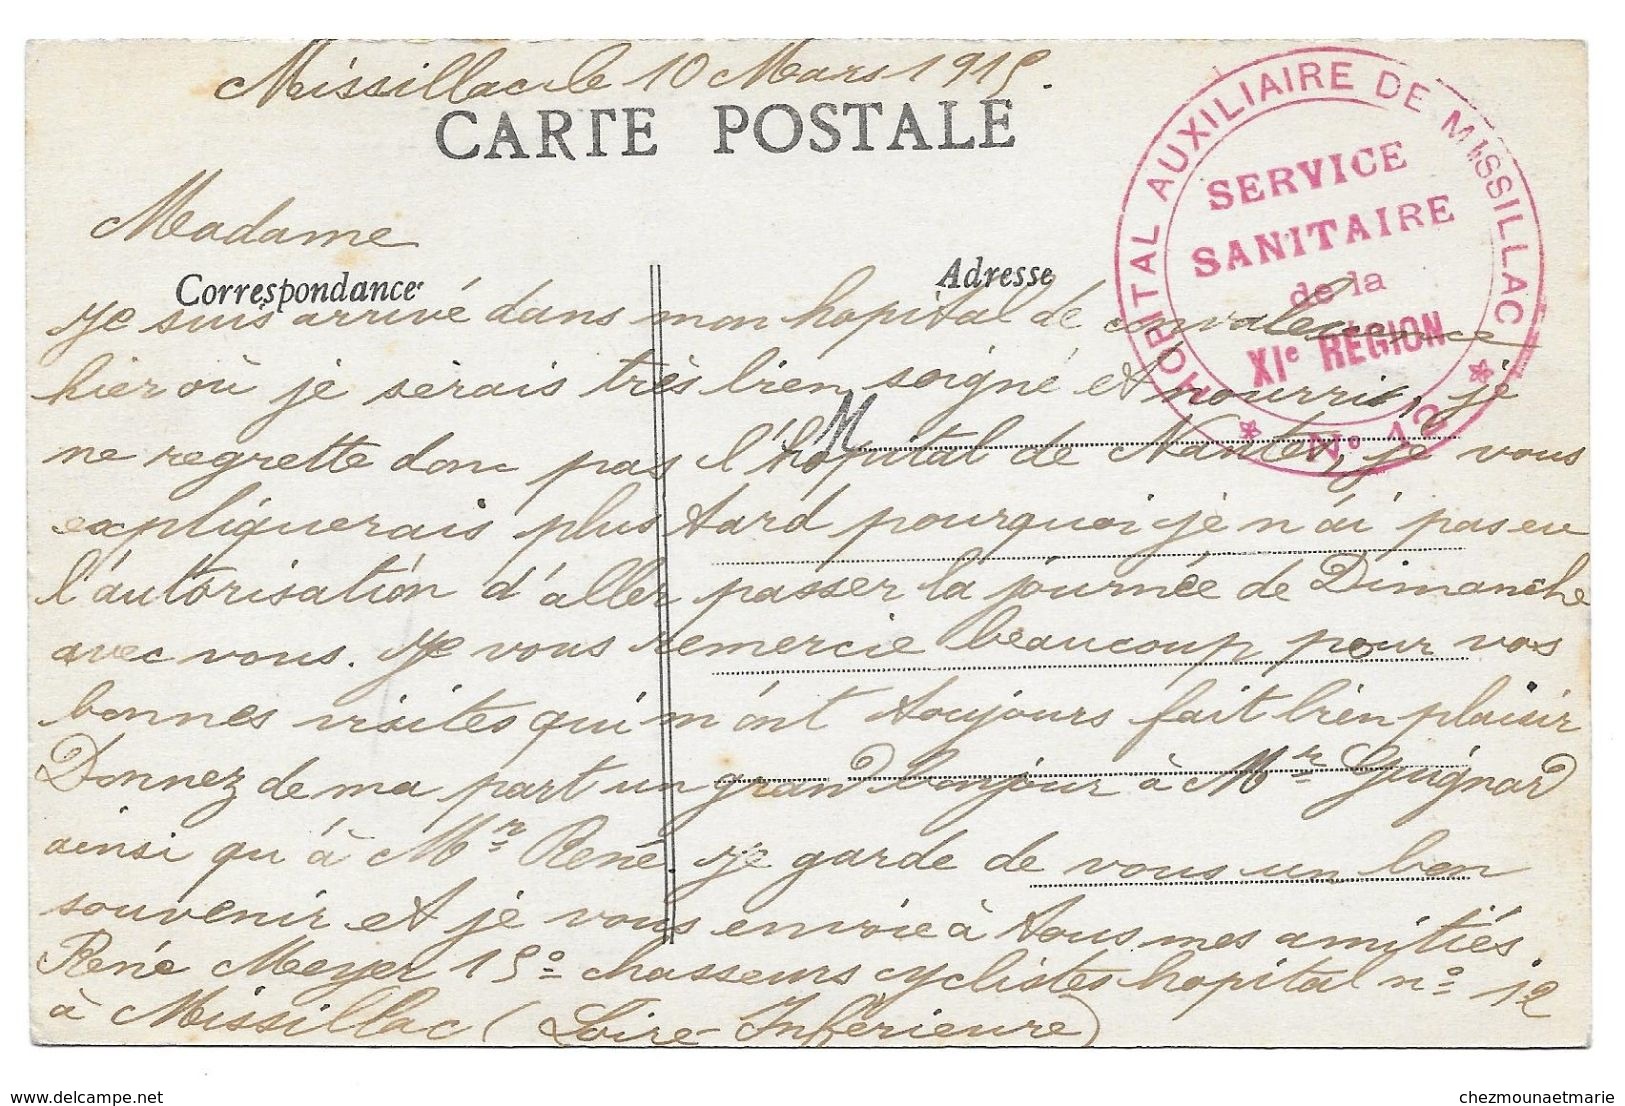 Missillac le 10 Mars 1915.
CARTE POSTALE
HOPITAL AUXILIAIRE DE MISSILLAC
* N° 12 *
SERVICE
SANITAIRE
de la
XIe RÉGION
Madame
Correspondance
Adresse
Je suis arrivé dans mon hopital de convalescence
hier où je serais très bien soigné et nourris, je
M
ne regrette donc pas l'hôpital de Nantes, je vous
expliquerais plus tard pourquoi je n'ai pas eu
l'autorisation d'aller passer la journée de Dimanche
avec vous. Je vous remercie beaucoup pour vos
bonnes visites qui m'ont toujours fait bien plaisir
Donnez de ma part un grand bonjour à Mr Guignard
ainsi qu'à Mr René, je garde de vous un bon
souvenir et je vous envoie à tous mes amitiés.
René Meyer 15° chasseurs cyclistes hopital n° 12
à Missillac (Loire-Inférieure)
delcampe.net
chezmounaetmarie